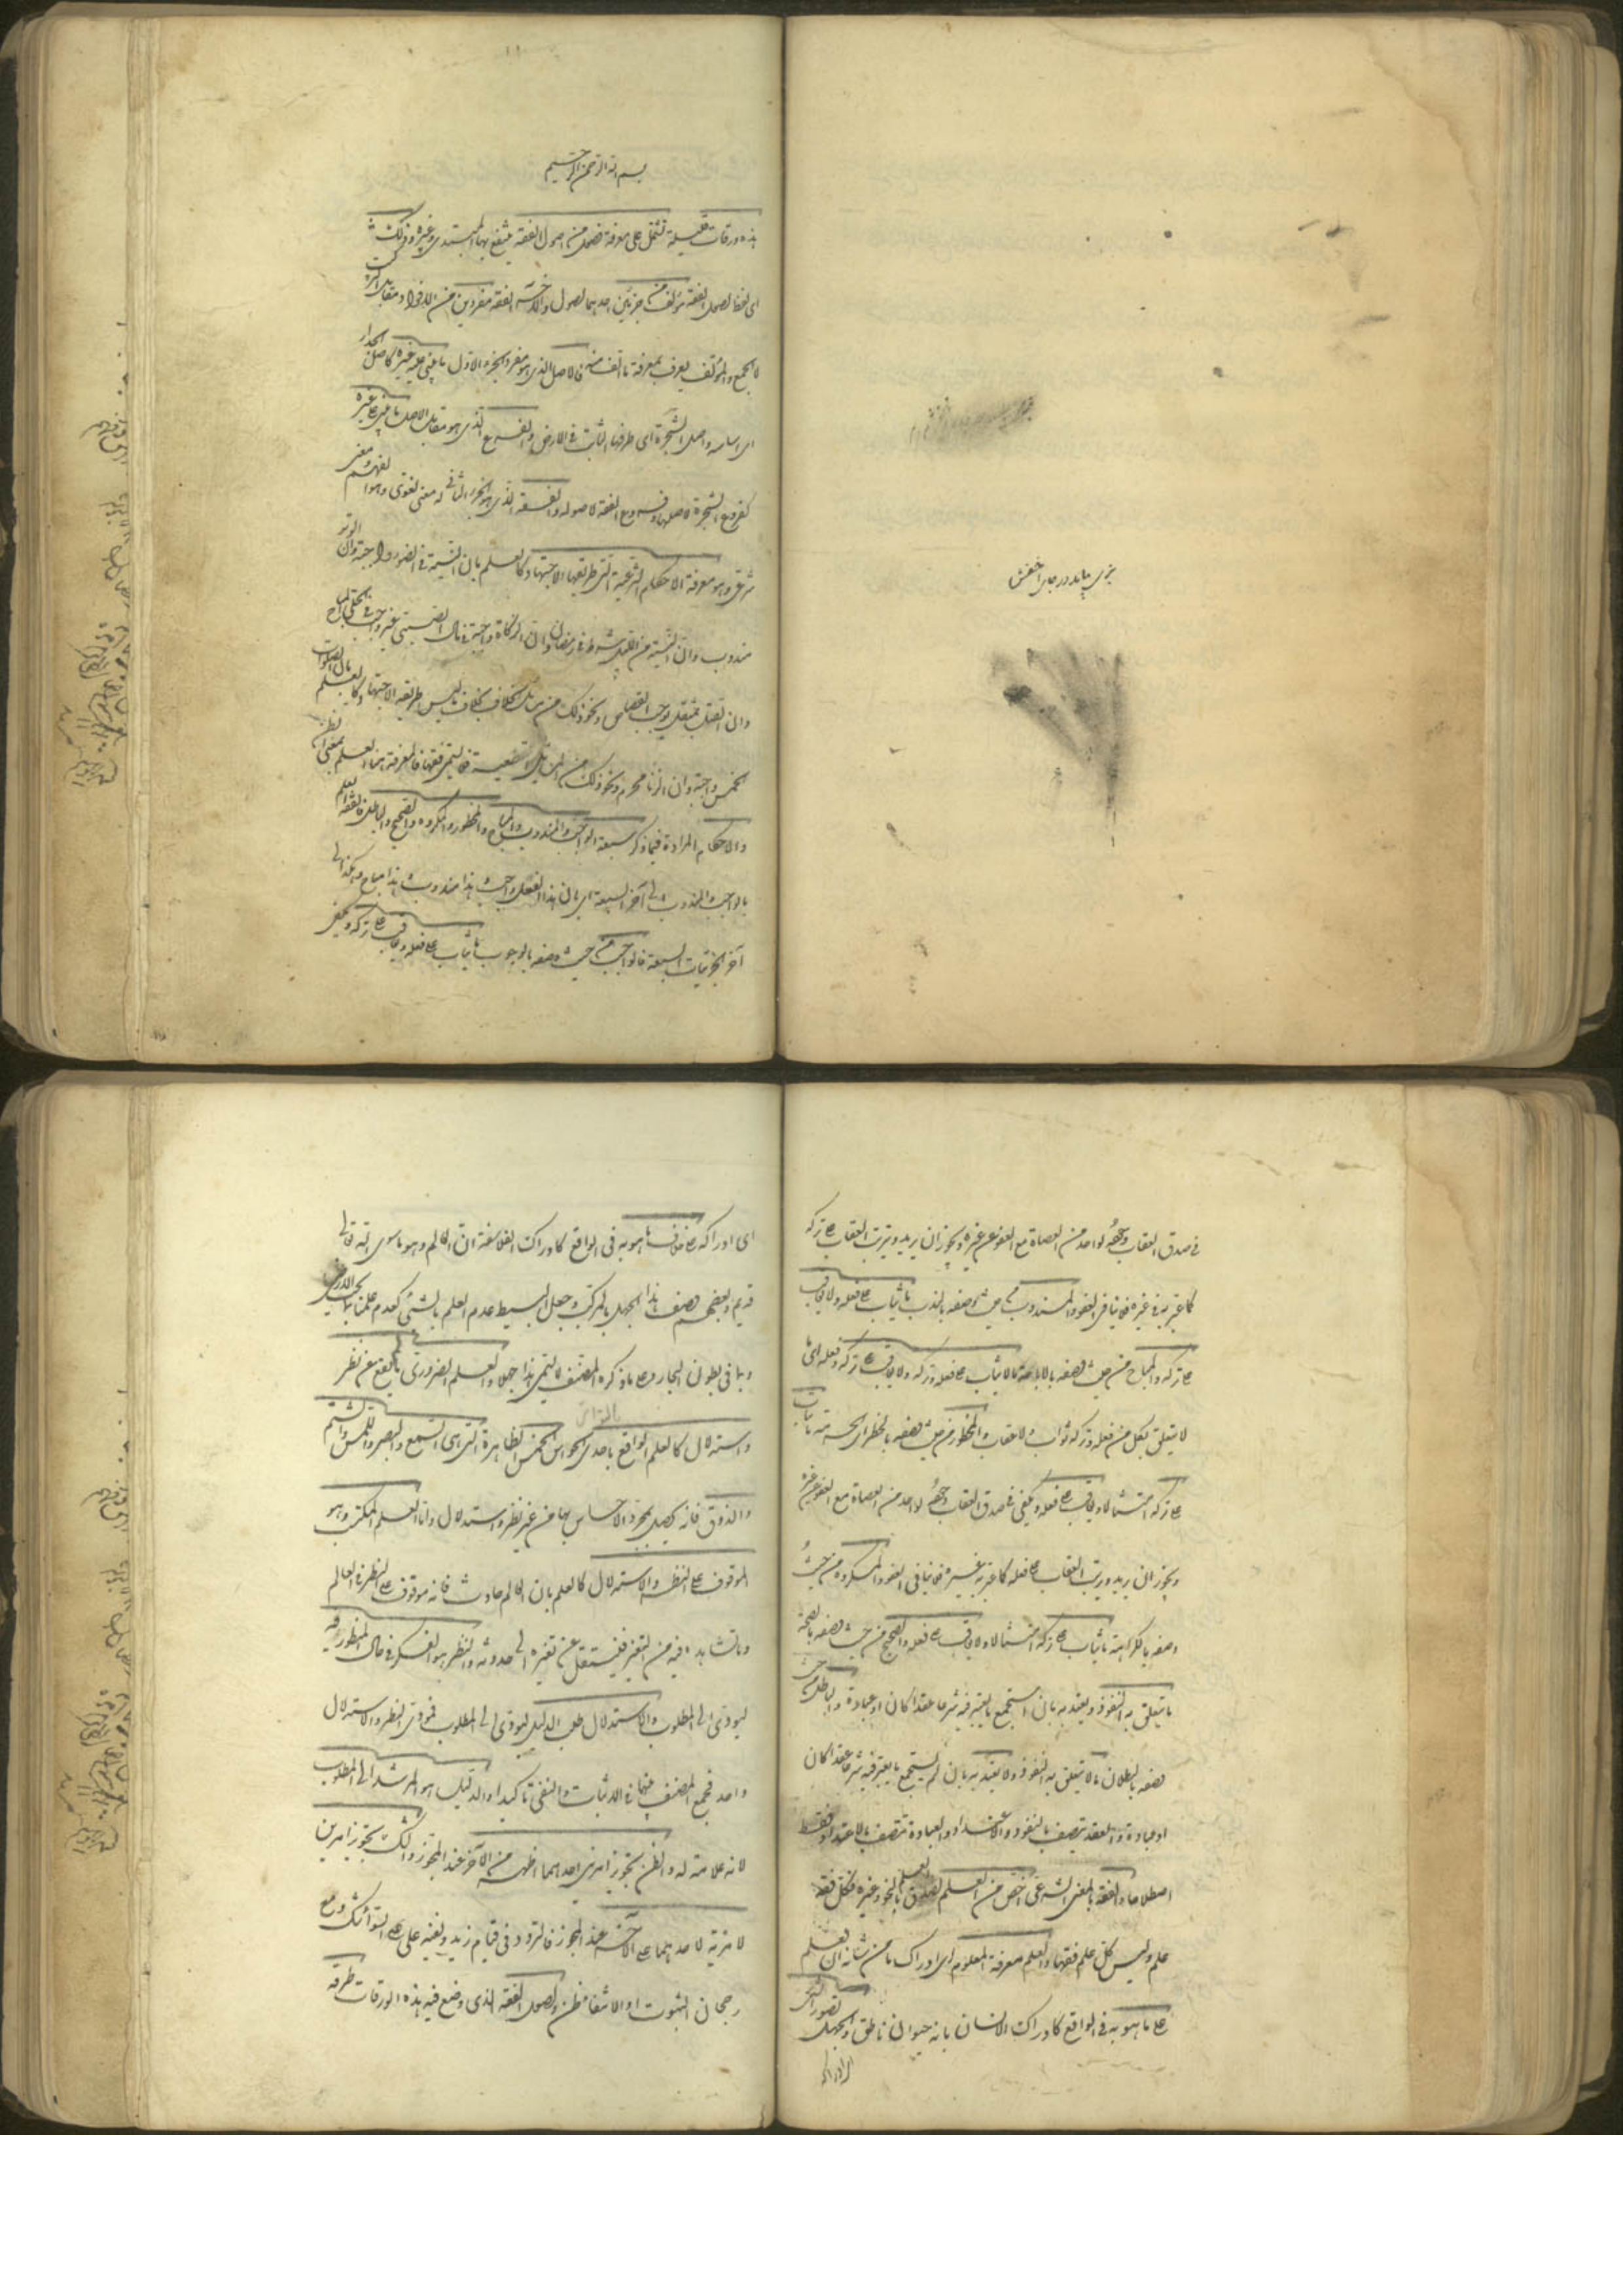 بزی باید در جای اخفش
بسم الله الرحمن الرحیم
هذه ورقات قلیلة تشتمل علی معرفة فصول من اصول الفقه ینتفع بها المبتدی وغیره وذلک
ای لفظ اصول الفقه مؤلف من جزئین احدهما اصول والآخر الفقه مفردین من الافراد مقابل الترکیب
لا الجمع والمؤلف یعرف بمعرفة ما الف منه فالاصل الذی هو مفرد الجزء الاول ما یبنی علیه غیره کاصل الجدار
ای اساسه واصل الشجرة ای طرفها الثابت فی الارض والفرع الذی هو مقابل الاصل ما یبنی علی غیره
کفروع الشجرة لاصلها وفروع الفقه لاصوله والفقه الذی هو الجزء الثانی له معنی لغوی وهو الفهم ومعنی
شرعی وهو معرفة الاحکام الشرعیة التی طریقها الاجتهاد کالعلم بان النیة فی الضوء واجبة وان الوتر
مندوب وان النیة من اللیل شرط فی رمضان وان الزکاة واجبة فی مال الصبی غیر واجبة فی الحلی المباح
وان القتل بمثقل یوجب القصاص ونحو ذلک من مسائل الخلاف بخلاف ما لیس طریقه الاجتهاد کالعلم بان الصلوات
الخمس واجبة وان الزنا محرم ونحو ذلک من المسائل القطعیة فلا یسمی فقها فالمعرفة هنا العلم بمعنی الظن
والاحکام المرادة فیما ذکر سبعة الواجب والمندوب والمباح والمحظور والمکروه والصحیح والباطل فالفقه العلم
بالواجب والمندوب الی آخر السبعة ای بان هذا الفعل واجب هذا مندوب هذا مباح وهکذا الی
آخر الجزئیات السبعة فالواجب من حیث وصفه بالوجوب ما یثاب علی فعله ویعاقب علی ترکه ویکفی
فی صدق العقاب وجوده لواحد من العصاة مع العفو عن غیره ویجوز ان یرید ویترتب العقاب علی ترکه
کما عبر به فی غیره فلا ینافی العفو والمندوب من حیث وصفه بالندب ما یثاب علی فعله ولا یعاقب
علی ترکه والمباح من حیث وصفه بالاباحة ما لا یثاب علی فعله وترکه ولا یعاقب علی ترکه وفعله ای ما
لا یتعلق بکل من فعله وترکه ثواب ولا عقاب والمحظور من حیث وصفه بالحظر ای الحرمة ما یثاب
علی ترکه امتثالا ویعاقب علی فعله ویکفی فی صدق العقاب وجوده لواحد من العصاة مع العفو عن غیره
ویجوز ان یرید ویترتب العقاب علی فعله کما عبر به فی غیره فلا ینافی العفو والمکروه من حیث
وصفه بالکراهة ما یثاب علی ترکه امتثالا ولا یعاقب علی فعله والصحیح من حیث وصفه بالصحة
ما یتعلق به النفوذ ویعتد به بان استجمع ما یعتبر فیه شرعا عقدا کان او عبادة والباطل من حیث
وصفه بالبطلان ما لا یتعلق به النفوذ ولا یعتد به بان لم یستجمع ما یعتبر فیه شرعا عقدا کان
او عبادة والعقد یتصف بالنفوذ والاعتداد والعبادة تتصف بالاعتداد فقط
اصطلاحا والفقه بالمعنی الشرعی اخص من العلم لصدق العلم بالنحو وغیره فکل فقه
علم ولیس کل علم فقها والعلم معرفة المعلوم ای ادراک ما من شانه ان یعلم
علی ما هو به فی الواقع کادراک الانسان بانه حیوان ناطق والجهل تصور الشی
ای ادراکه
ای ادراکه علی خلاف ما هو به فی الواقع کادراک الفلاسفة ان العالم وهو ما سوی الله تعالی
قدیم وبعضهم وصف هذا الجهل بالمرکب وجعل البسیط عدم العلم بالشیء کعدم علمنا بما تحت الارضین
وبما فی بطون البحار وعلی ما ذکره المصنف لا یسمی هذا جهلا والعلم الضروری ما لم یقع عن نظر
واستدلال کالعلم الواقع باحدی الحواس الخمس الظاهرة التی هی السمع والبصر واللمس والشم
والذوق فانه یحصل بمجرد الاحساس بها من غیر نظر واستدلال واما العلم المکتسب وهو
الموقوف علی النظر والاستدلال کالعلم بان العالم حادث فانه موقوف علی النظر فی العالم
وما نشاهده فیه من التغیر فینتقل من تغیره الی حدوثه والنظر هو الفکر فی حال المنظور فیه
لیؤدی الی المطلوب والاستدلال طلب الدلیل لیؤدی الی المطلوب فمؤدی النظر والاستدلال
واحد فجمع المصنف بینهما فی الاثبات والنفی تاکیدا والدلیل هو المرشد الی المطلوب
لانه علامة له والظن تجویز امرین احدهما اظهر من الآخر عند المجوز والشک تجویز امرین
لا مزیة لاحدهما علی الآخر عند المجوز فالتردد فی قیام زید ونفیه علی السواء شک ومع
رجحان الثبوت او الانتفاء ظن واصول الفقه الذی وضع فیه هذه الورقات طرقه